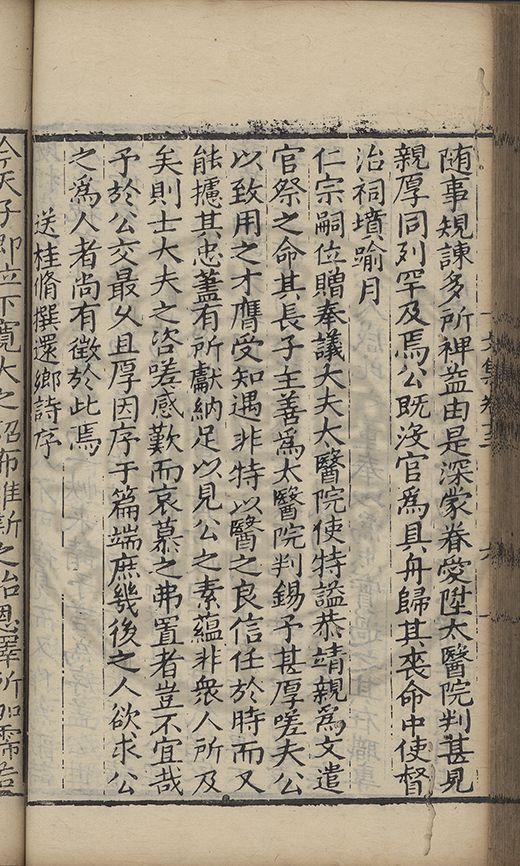 随事規諫多所裨益由是深蒙眷愛陞太醫院判甚見
親厚同列罕及焉公既沒官為具舟歸其喪命中使督
治祠墳踰月
仁宗嗣位贈奉議大夫太醫院使特謚恭靖親為文遣
官祭之命其長子主善為太醫院判錫予甚厚嗟夫公
以致用之才膺受知遇非特以醫之良信任於時而又
能攄其忠蓋有所獻納足以見公之素蘊非衆人所及
矣則士大夫之咨嗟感歎而哀慕之弗置者豈不宜哉
予於公交最乆且厚因序于篇端庶幾後之人欲求公
之為人者尚有徵於此焉
送桂脩撰還鄉詩序
今天子即位下寬大之詔布維新之治恩澤所加霈若
文集卷十三